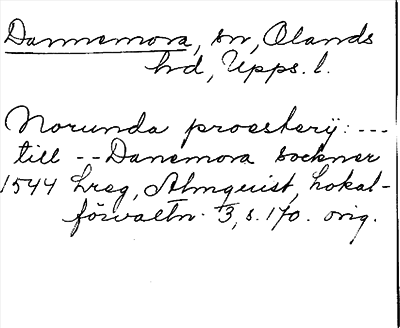 Dannemora, sn, Olands
hd, Upps. l.
Norunda proesterÿ: ---
till -- Danemora sockner
1544 Lreg, Almquist, Lokal-
förvaltn. 3, s. 170. orig.